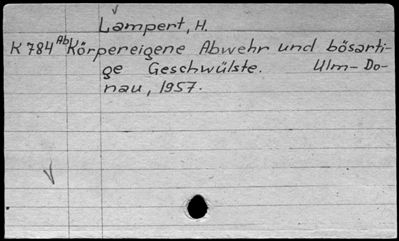 Lampert, H.
K 784 Ab Körpereigene Abwehr und bösarti-
ge Geschwülste. Ulm-Do-
nau, 1957.